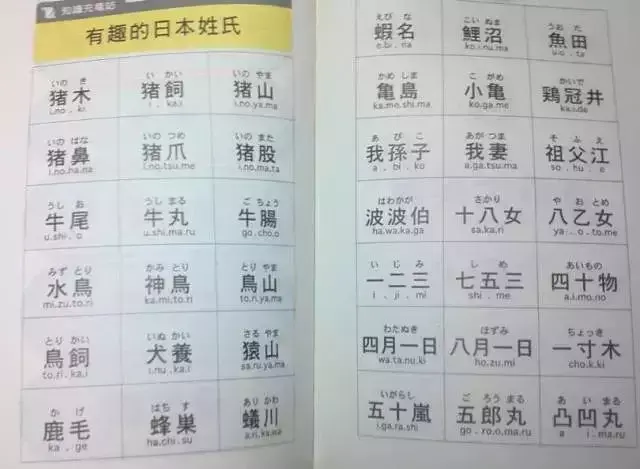 知識充電站
有趣的日本姓氏
いの き いかい いの やま
猪木 猪飼 猪山
i.no . ki i . ka.i i.no.ya.ma
いの ばな いの つめ いの また
猪鼻 猪爪 猪股
i.no.ha.na i.no.tsu.me i.no.ma.ta
うし お うし まる ご ちょう
牛尾 牛丸 牛腸
u.shi . o u.shi.ma.ru go.cho.o
みず とり かみ とり とり やま
水鳥 神鳥 鳥山
mi.zu.to.ri ka.mi.to.ri to.ri.ya.ma
とり かい いぬ かい さる やま
鳥飼 犬養 猿山
to.ri.ka.i i.nu.ka.i sa.ru.ya.ma
か げ はち す あり かわ
鹿毛 蜂巣 蟻川
ka . ge ha.chi.su a.ri.ka.wa
えび な こい ぬま うお た
蝦名 鯉沼 魚田
e.bi . na ko.i.nu.ma u.o . ta
かめ しま こ がめ かいで
亀島 小亀 鶏冠井
ka.me.shi.ma ko.ga.me ka.i.de
あ び こ あが つま そ ふ え
我孫子 我妻 祖父江
a . bi . ko a.ga.tsu.ma so . hu . e
はわかが さかり や おと め
波波伯 十八女 八乙女
ha.wa.ka.ga sa.ka.ri ya . o . to.me
い じ み し め あいもの
一二三 七五三 四十物
i . ji . mi shi . me a.i.mo.no
わたぬき ほずみ ちょっき
四月一日 八月一日 一寸木
wa.ta.nu.ki ho.zu.mi cho.k.ki
いがらし ご ろう まる あ い まる
五十嵐 五郎丸 凸凹丸
i.ga.ra.shi go . ro.o.ma.ru a i.ma.ru